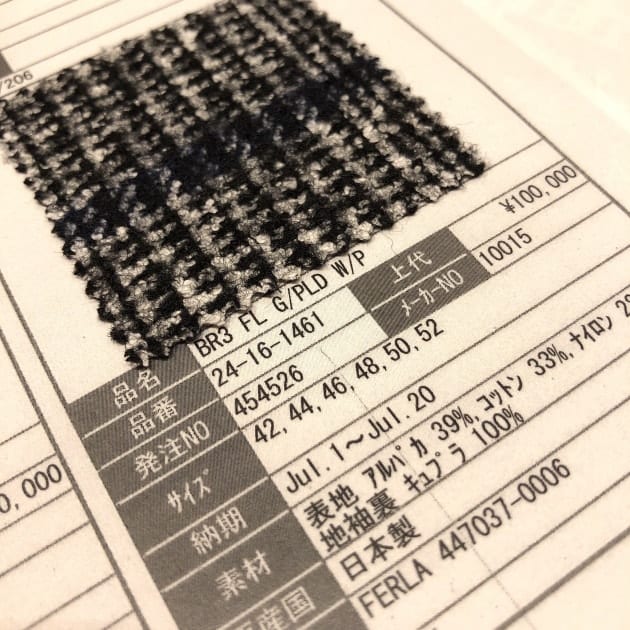 /206
品名 BR3 FL G/PLD W/P
上代 ¥100,000
品番 24-16-1461
メーカーNO 10015
発注NO 454526
サイズ 42, 44, 46, 48, 50, 52
納期 Jul. 1～Jul. 20
素材 表地 アルパカ 39%, コットン 33%, ナイロン
地袖裏 キュプラ 100%
産国 日本製
FERLA 447037-0006
0,000